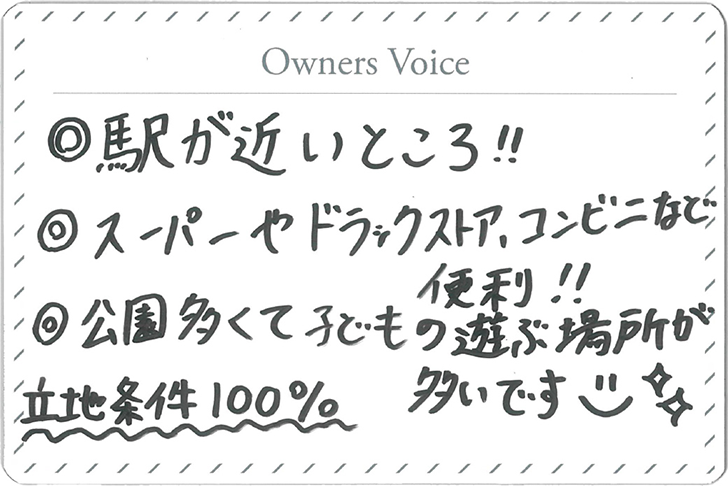 Owners Voice
◎駅が近いところ!!
◎スーパーやドラックストア、コンビニなど
便利!!
◎公園多くて子どもの遊ぶ場所が
多いです
立地条件100%